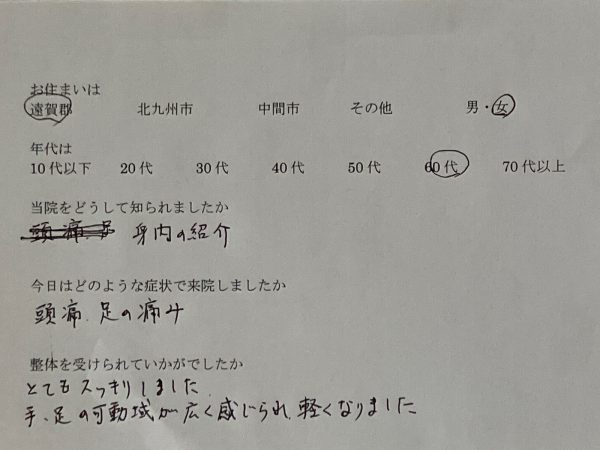 お住まいは
遠賀郡 北九州市 中間市 その他 男・女
年代は
10代以下 20代 30代 40代 50代 60代 70代以上
当院をどうして知られましたか
頭痛、足 身内の紹介
今日はどのような症状で来院しましたか
頭痛、足の痛み
整体を受けられていかがでしたか
とてもスッキリしました
手、足の可動域が広く感じられ、軽くなりました